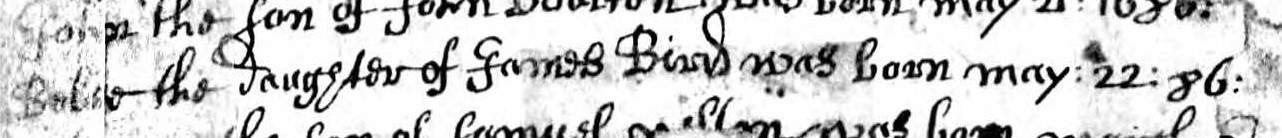 John the son of John was born may 2: 1686:
the daughter of James Bird was born may: 22: 86:
the son of Samuel was born